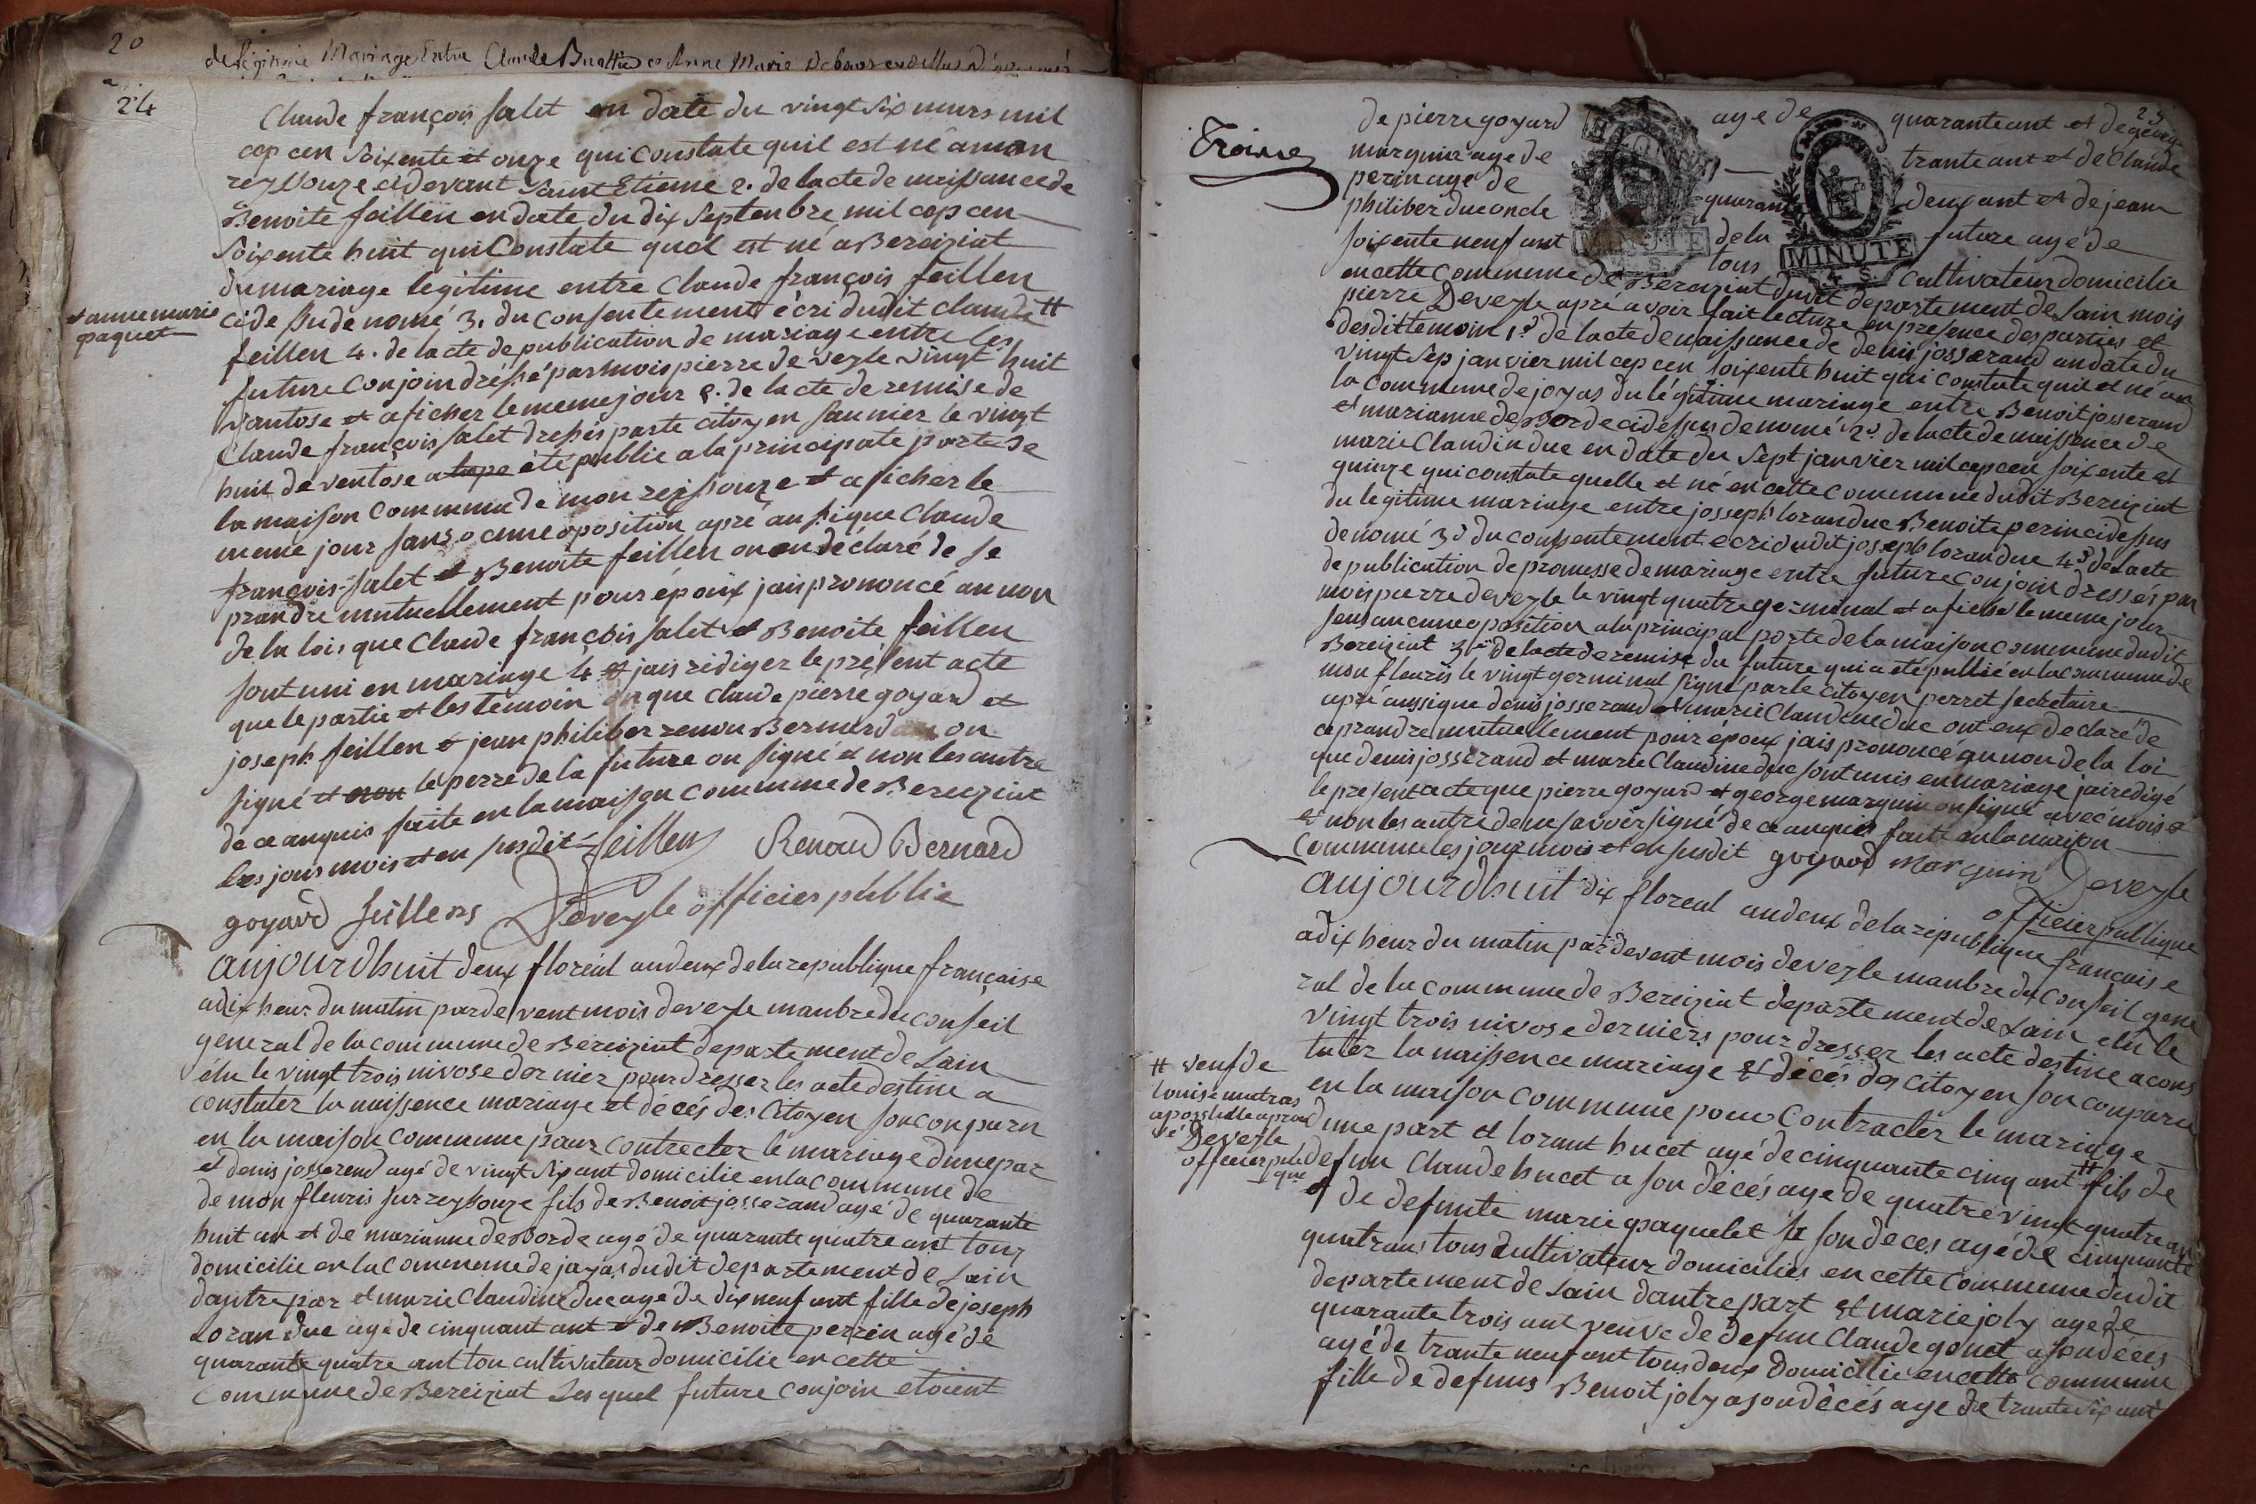 20
de légitime Mariage Entre Claude Buattier et Anne Marie
24
Claude françois salet en date du vingt six mars mil
cep cen Soixente et onze qui Constate quil est né a mon
reyssouze ci devant Saint Etienne 2. de lacte de naissance de
Benoite feillen en date du dix Septenbre mil cep cen
Soixente huit qui Constate quel est né a Bereiziat
du mariage legitime entre Claude françois feillen
+ anne marie
paquet
ci de su de nomé 3. du consentement écri dudit claude #
feillen 4. de lacte de publication de mariage entre les
future conjoin dréssé par mois pierre de veyle vingt huit
vantose et aficher le meme jour 5. de lacte de remise de
Claude françois salet dressés par le citoyen saunier le vingt
huit de ventose a été publie a la principale porte de
la maison commune de mon reyssouze et aficher le
meme jour sans o cune oposition apré ausique Claude
françois salet et Benoite feillen on en déclaré de se
prandre mutuellement pour époix jais prononcé au non
de la lois que Claude françois salet et Benoite feillen
sont uni en mariage 4 et jais rédiger le présent acte
que le partie et les temoin on que Claude pierre goyard et
joseph feillen et jean philiber renou Bernerd on
signé et non le perre de la future on signé et non les autre
de ce anquis faite en la maison commune de Bereiziat
les jour mois et en susdit feillens Renoud Bernard
goyard feillens Deveyle officier publie
aujourdhuit deux floréal an deux de la republique française
a dix heur du matin par de vent mois deveyle manbre du conseil
general de la commune de Bereiziat departement de Lain
élu le vingt trois nivose dernier pour dresser les acte destine a
constater la naissence mariage et décés des Citoyen son conparu
en la maison commune pour contrecter le mariage dune par
et denis josserend agé de vingt six ant domicilie en la commune de
de mon fleuris sur reyssouze fils de Benoit josserand agé de quarante
huit an et de marianne deborde agé de quarante quatre ant tous
domicilie en la commune de jayas dudit departement de Lain
dautre par et marie Claudine duc agé de dix neuf ant fille de joseph
Loran duc agé de cinquant ant et de Benoite perrin agé de
quarante quatre ant tou cultivateur domicilie en cette
commune de Bereiziat Les quel future conjoin etoient
25
Troisne
de pierre goyard age de quarante ant et de george
marguin age de trante ant et de Claude
perin age de quarante deux ant et de jean
philiber duc oncle de la future agé de
soixente neuf ant tous cultivateur domicilie
MINUTE
MINUTE
4 S.
en cette commune de Bereiziat dudit departement de Lain mois
pierre Deveyle apré avoir fait lecture en presence des parties et
desdit temoin 1° de lacte de naissance de denis josserand an date du
vingt Sep janvier mil cep cen soixente huit qui constate quil et né en
la commune de joyas du légitime mariage entre Benoit josserand
et marianne de Borde ci dessus de nomé 2° de lacte de naissence de
marie Claudin duc en date du Sept janvier mil cep cen soixente et
quinze qui constate quelle et né en cette commune dudit Bereiziat
du legitime mariage entre josseph loran duc Benoite perin ci dessus
de nomé 3° du consentement ecri dudit josseph loran duc 4° de Lacte
de publication de promesse de mariage entre future conjoin dresser par
mois pierre deveyle le vingt quatre germinal et aficher le meme jour
sans aucune oposition a la principal porte de la maison commune dudit
Bereiziat de lacte de remise du future qui a été publié en la commune de
mon fleuris le vingt germinal signé par le citoyen perret secretaire
apré aussique denis josserand et marie Claudine duc ont eux declaré de
ce prandre mutuellement pour époux jais prononcé au non de la loi
que denis josserand et marie Claudine duc sont unis en mariage jai redigé
le present acte que pierre goyard et george marguin on signé avec mois
et non les autre de ne savoir signé de ce anquis fait en la maison
commune les jour mois et en susdit goyard Marguin Deveyle
officier publique
aujourdhuit dix floreal an deux de la republique française
a dix heur du matin par devent mois deveyle manbre du conseil gene
ral de la commune de Bereiziat departement de Lain elu le
vingt trois nivose derniers pour dresser les acte destine a cons
tater la naissence mariage et décés des citoyen son conparu
en la maison commune pour Contracter le mariage
# veuf de
Louise mutras
apostille aprou
vé Deveyle
officier publi
que
dune part et lorant hucet agé de cinquante cinq ant # fils de
defun Claude hucet a son décés age de quatre vingt quatre an
et de defunte marie paquelet a son deces agé de cinquante
quatrans tous Cultivateur domicilies en cette Commune dudit
departement de Lain dautre part et marie joly age de
quarante trois ant veuve de defun Claude gonet a son décés
agé de trante neuf ant tous deux domicilie en cette commune
fille de defuns Benoit joly a son décés age de trante six ant